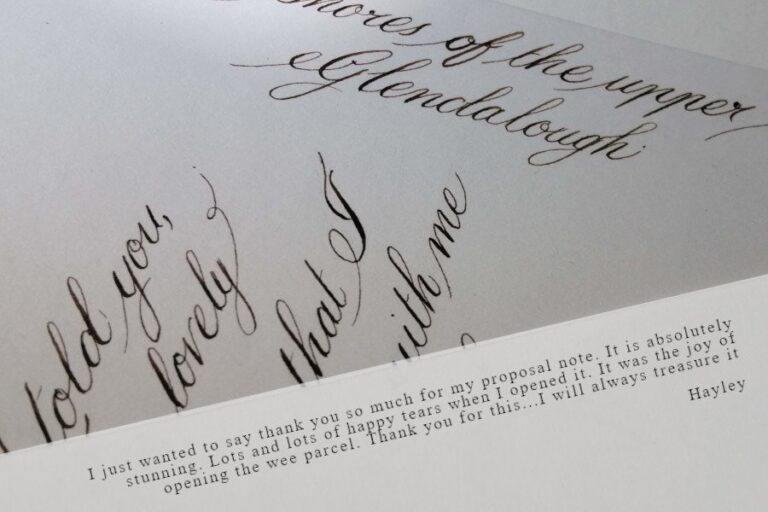 shores of the upper
Glendalough
told you,
lovely
that I
with me
I just wanted to say thank you so much for my proposal note. It is absolutely
stunning. Lots and lots of happy tears when I opened it. It was the joy of
opening the wee parcel. Thank you for this...I will always treasure it
Hayley